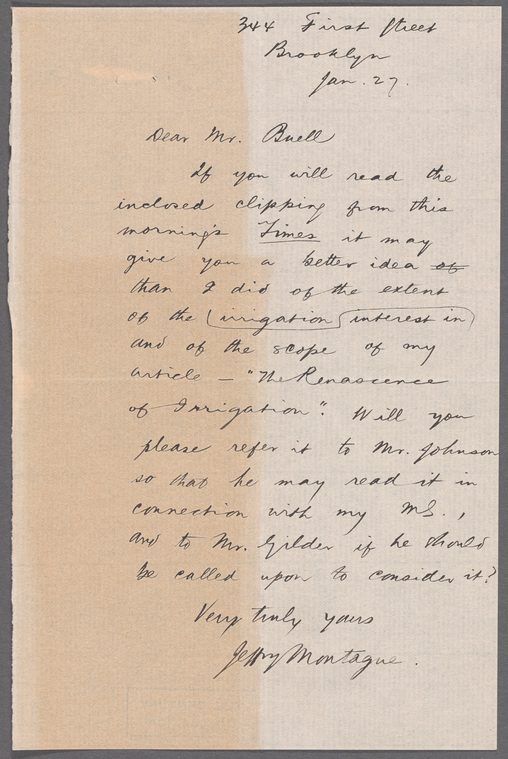 344 First Street
Brooklyn
Jan. 27.
Dear Mr. Buell
If you will read the
inclosed clipping from this
morning's Times it may
give you a better idea of
than I did of the extent
of the irrigation interest in
and of the scope of my
article — "The Renascence
of Irrigation". Will you
please refer it to Mr. Johnson
so that he may read it in
connection with my MS.,
and to Mr. Gilder if he should
be called upon to consider it?
Very truly yours
Montague.